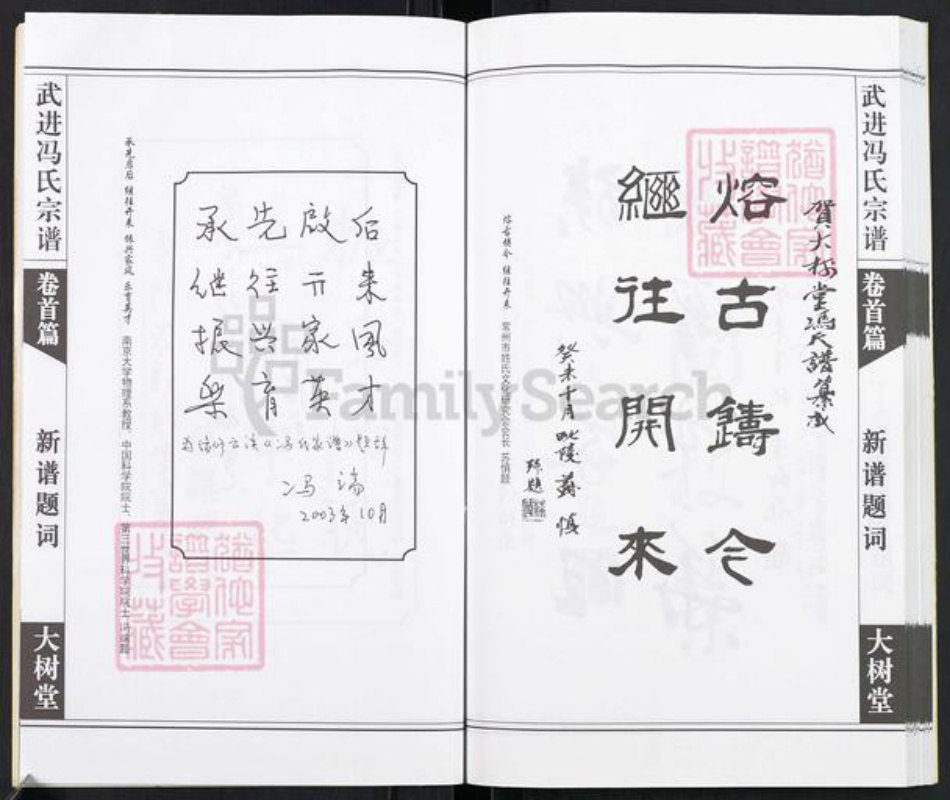 武进冯氏宗谱
卷首篇
新谱题词
大树堂
賀大树堂冯氏譜集成
熔古鑄今
繼往開來
癸未十月毗陵蘇慎
熔古铸今 继往开来 常州市姓氏文化研究会会长 苏慎题
猶他家
譜學會
收藏
承先啟后
继往开来
振兴家风
乐育英才
冯端
2003年10月
承先启后 继往开来 振兴家风 乐育英才 南京大学物理系教授、中国科学院院士、第三世界科学院院士 冯端题
猶他家
譜學會
收藏
武进冯氏宗谱
卷首篇
新谱题词
大树堂
FamilySearch